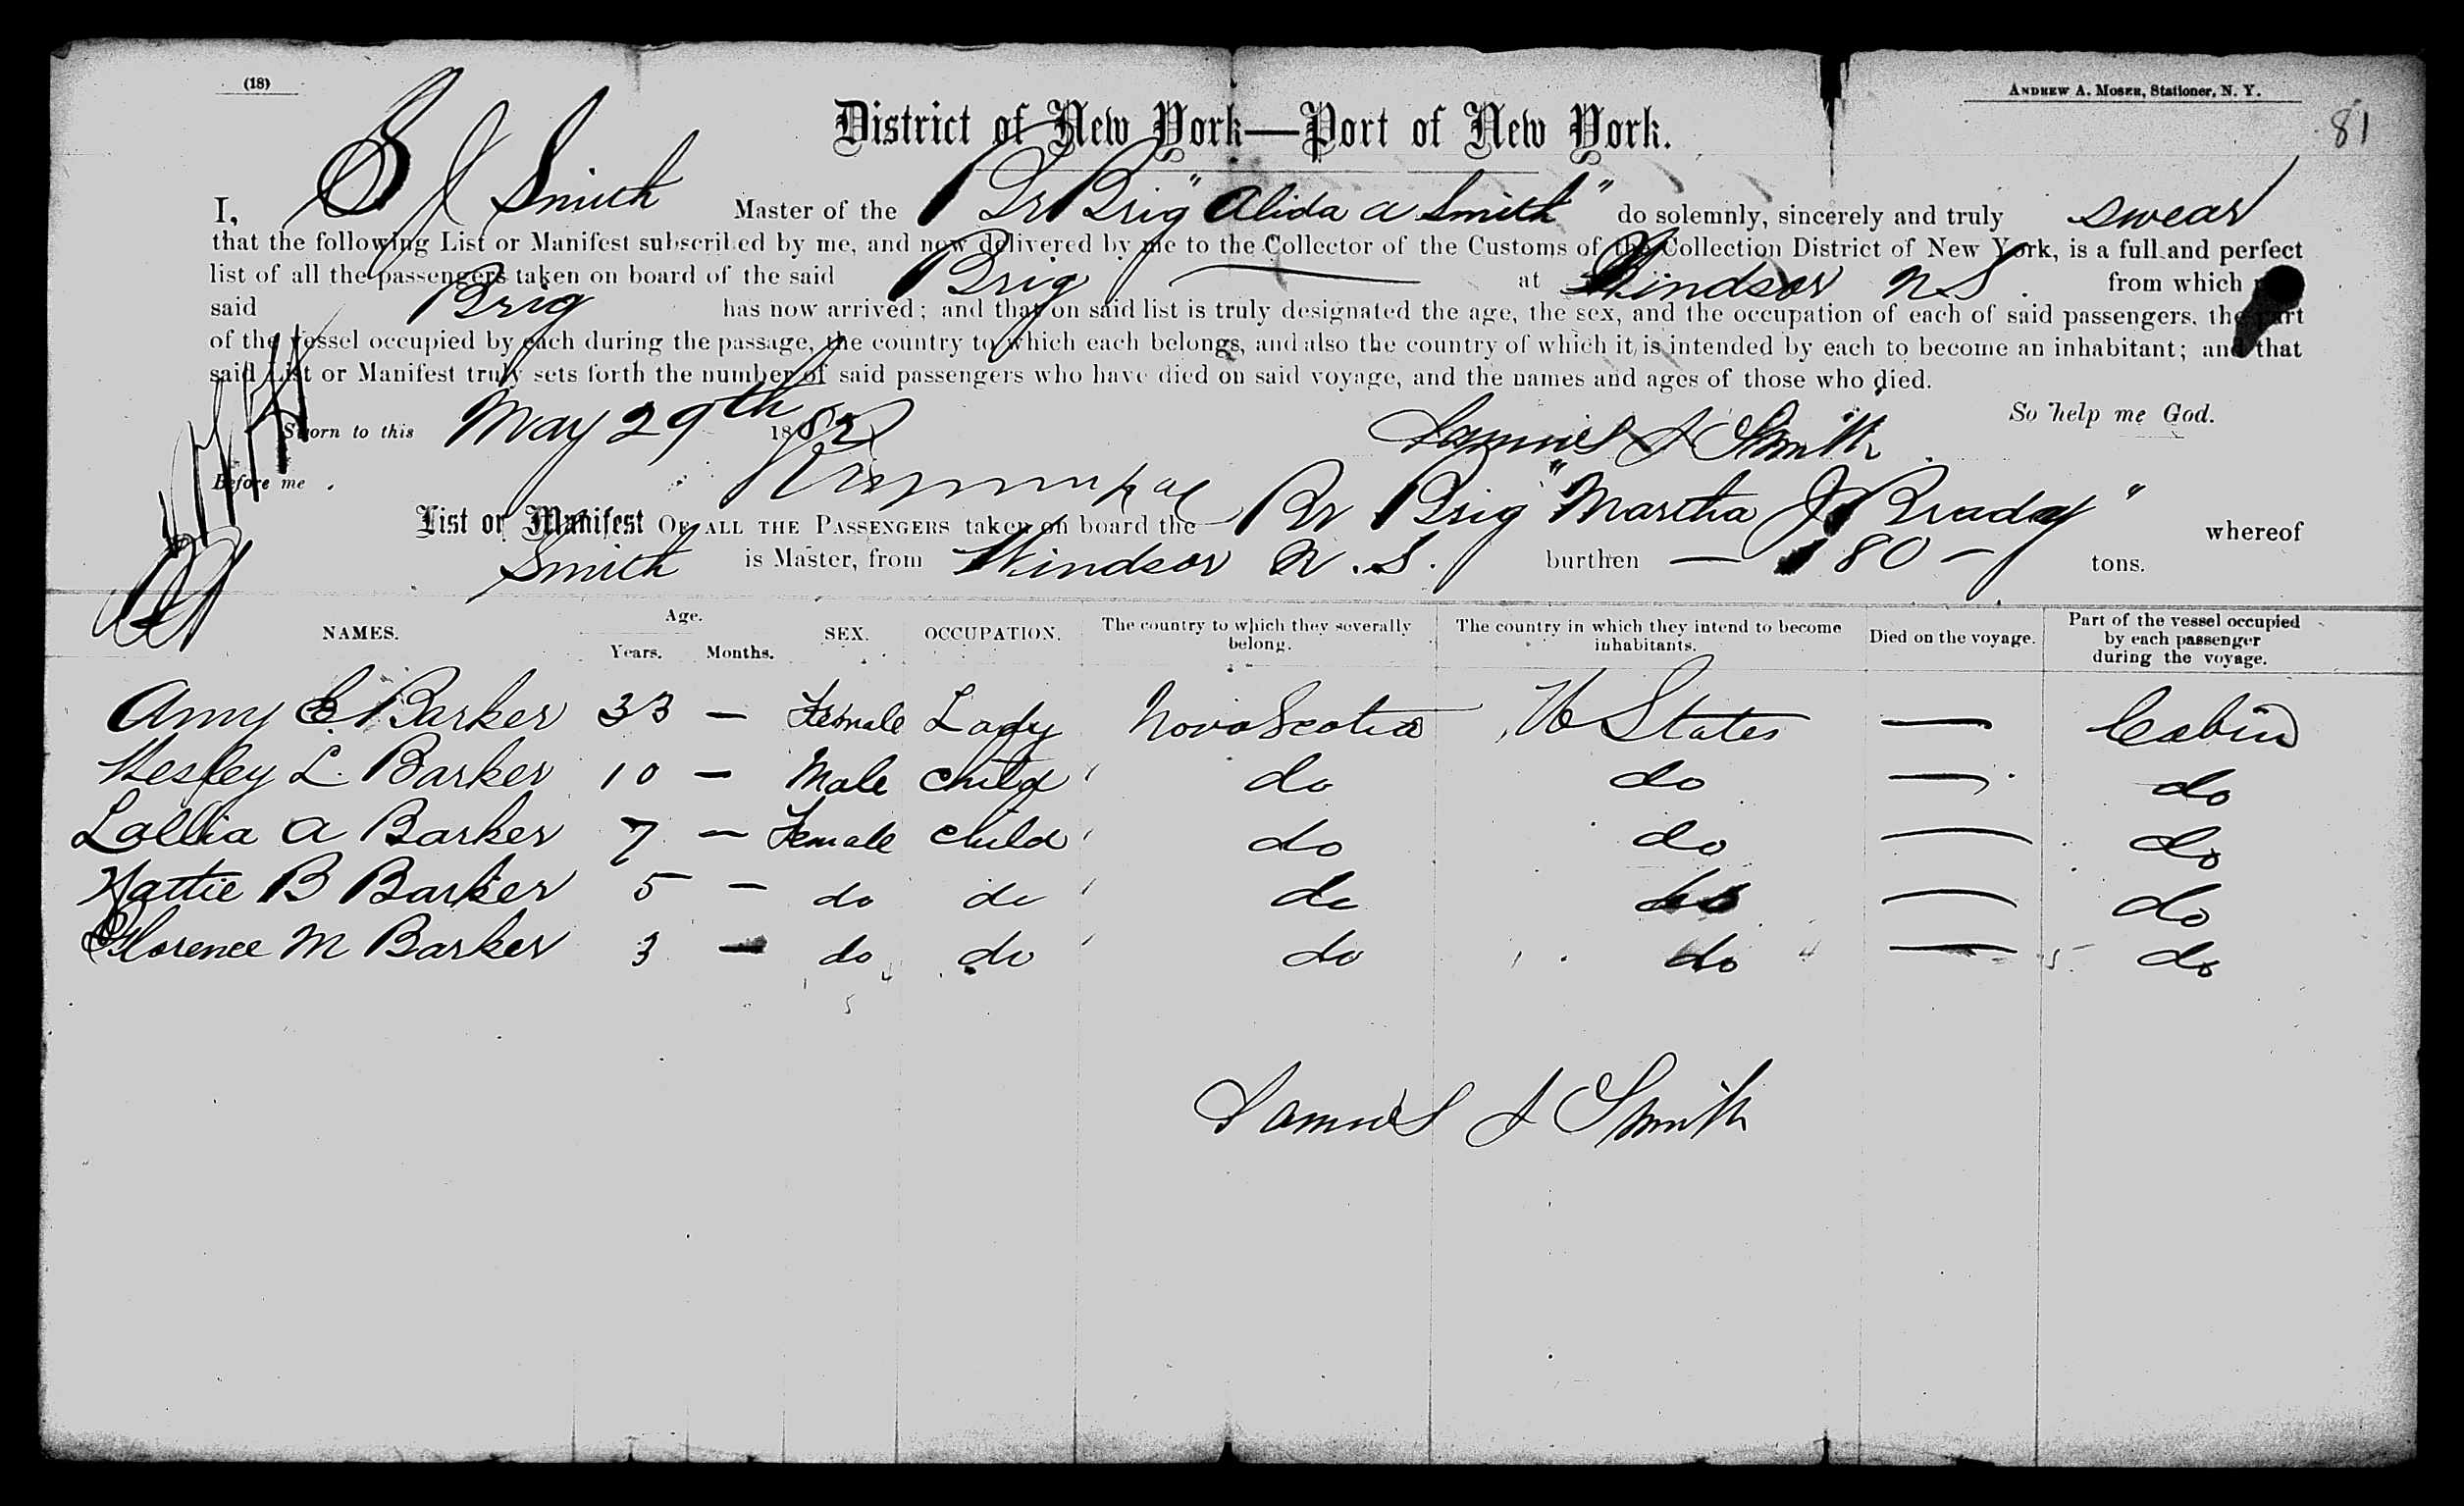 (18)
ANDREW A. MOSER, Stationer, N. Y.
81
District of New York—Port of New York.
I, S J Smith Master of the Br Brig "Alida A Smith" do solemnly, sincerely and truly swear
that the following List or Manifest subscribed by me, and now delivered by me to the Collector of the Customs of the Collection District of New York, is a full and perfect
list of all the passengers taken on board of the said Brig at Windsor N S. from which
said Brig has now arrived; and that on said list is truly designated the age, the sex, and the occupation of each of said passengers, the part
of the vessel occupied by each during the passage, the country to which each belongs, and also the country of which it is intended by each to become an inhabitant; and that
said List or Manifest truly sets forth the number of said passengers who have died on said voyage, and the names and ages of those who died.
So help me God.
Sworn to this May 29th 1882 Samuel J Smith
Before me
List or Manifest OF ALL THE PASSENGERS taken on board the Br Brig "Martha J Brady" whereof
Smith is Master, from Windsor N. S. burthen — 180 — tons.
NAMES. Age. Years. Months. SEX. OCCUPATION. The country to which they severally belong. The country in which they intend to become inhabitants. Died on the voyage. Part of the vessel occupied by each passenger during the voyage.
Amy E. Barker 33 — Female Lady Nova Scotia U States — Cabin
Wesley L. Barker 10 — Male Child do do — do
Lallia A Barker 7 — Female Child do do — do
Hattie B Barker 5 — do do do do — do
Florence M Barker 3 — do do do do — do
Samuel J Smith